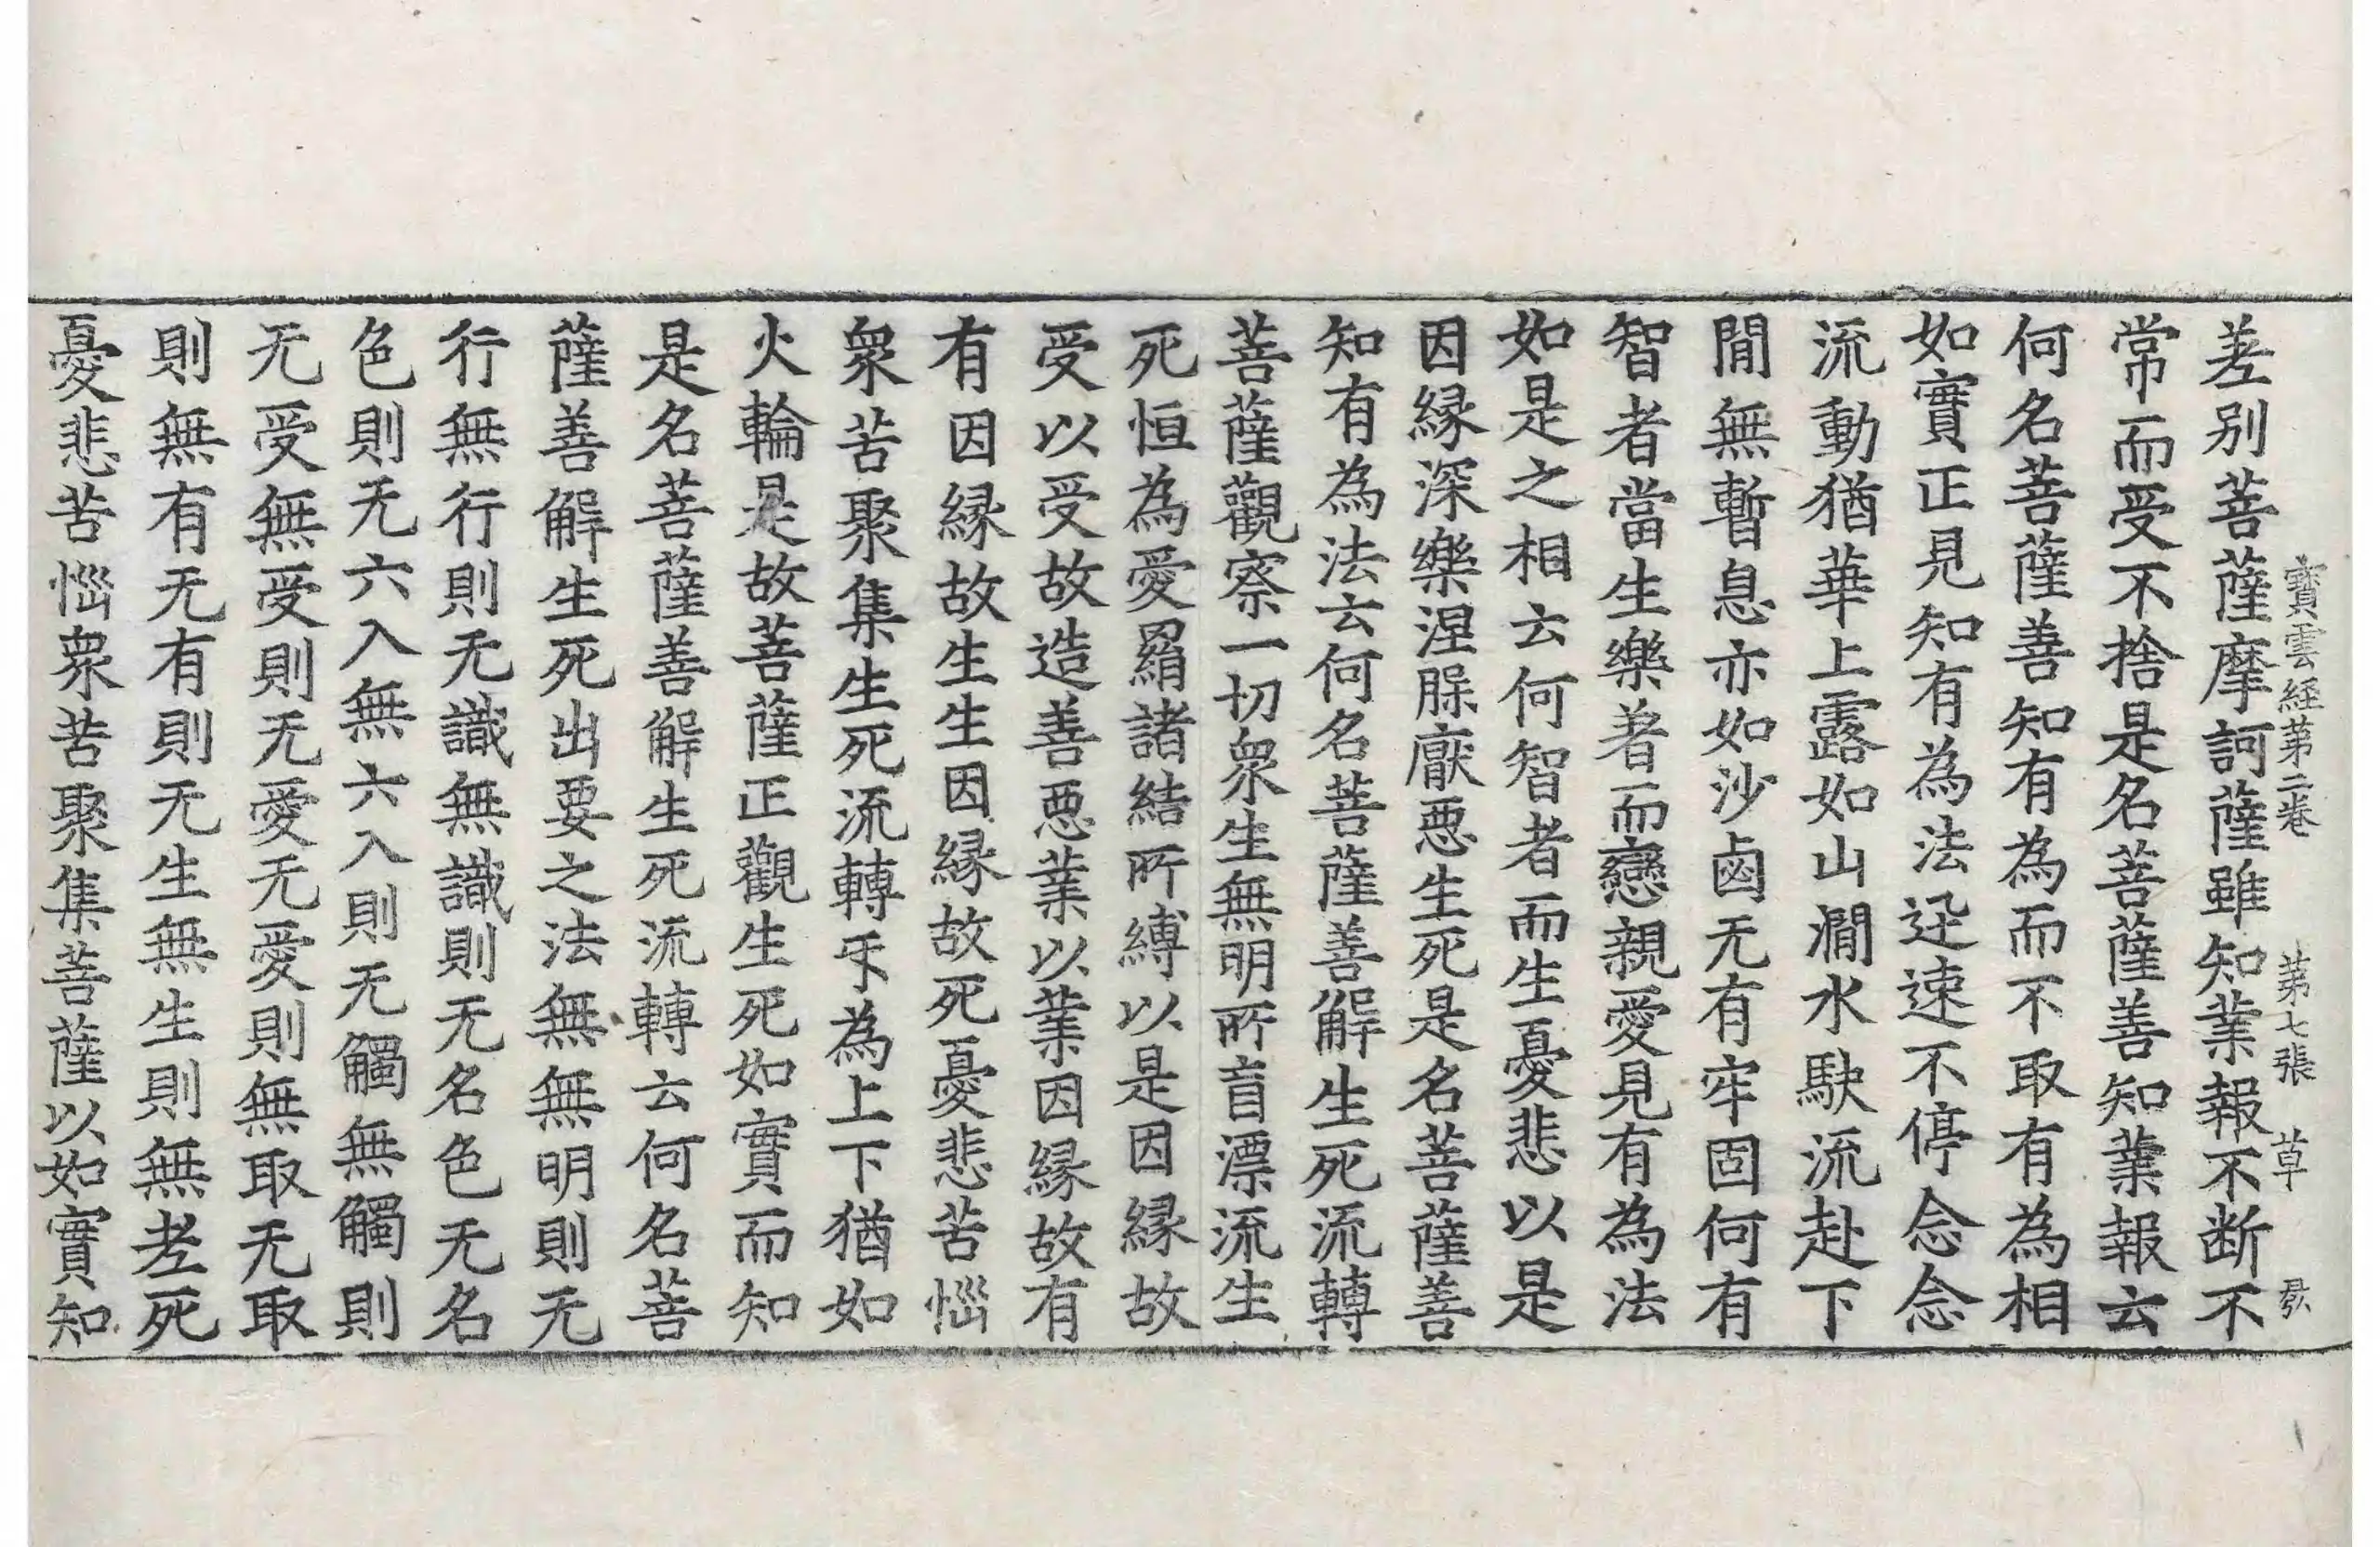 寶雲經第二卷 第七張 草
差別菩薩摩訶薩雖知業報不断不
常而受不捨是名菩薩善知業報云
何名菩薩善知有為而不取有為相
如實正見知有為法迅速不停念念
流動猶華上露如山澗水駃流赴下
閒無暫息亦如沙鹵无有牢固何有
智者當生樂著而戀親愛見有為法
如是之相云何智者而生憂悲以是
因縁深樂涅槃厭惡生死是名菩薩善
知有為法云何名菩薩善解生死流轉
菩薩觀察一切衆生無明所盲漂流生
死恒為愛羂諸結所縛以是因縁故
受以受故造善惡業以業因縁故有
有因縁故生生因縁故死憂悲苦惱
衆苦聚集生死流轉互為上下猶如
火輪是故菩薩正觀生死如實而知
是名菩薩善解生死流轉云何名菩
薩善解生死出要之法無無明則无
行無行則无識無識則无名色无名
色則无六入無六入則无觸無觸則
无受無受則无愛无愛則無取无取
則無有无有則无生無生則無老死
憂悲苦惱衆苦聚集菩薩以如實知